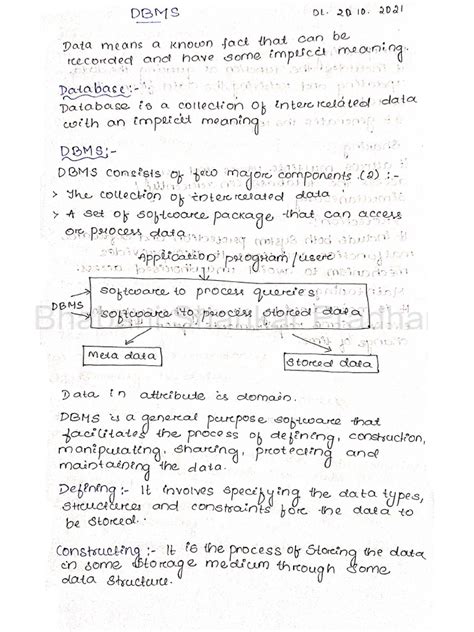 DBMS
Dt. 20.10.2021
Data means a known fact that can be
recorded and have some implicit meaning.
Database:-
Database is a collection of interrelated data
with an implicit meaning
DBMS:-
DBMS consists of few major components (2) :-
> The collection of interrelated data
> A set of software package that can access
or process data
Application program/users
software to process queries
DBMS
software to process stored data
Meta data
Stored data
Data in attribute is domain.
DBMS is a general purpose software that
facilitates the process of defining, construction,
manipulating, sharing, protecting and
maintaining the data.
Defining:- It involves specifying the data types,
structures and constraints for the data to
be stored.
Constructing:- It is the process of storing the data
in some storage medium through some
data structure.